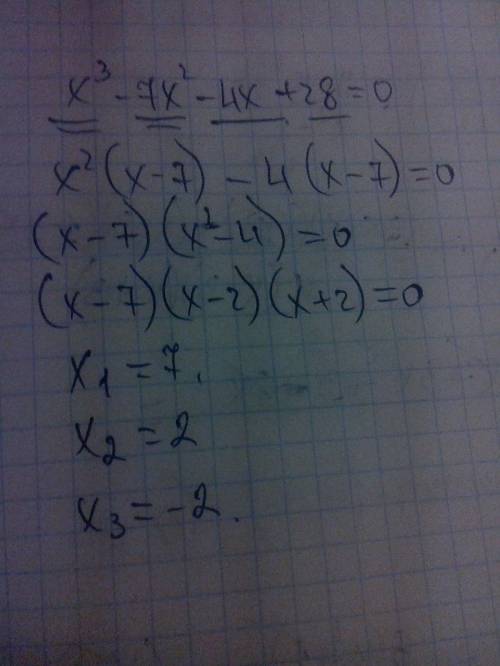 x³ - 7x² - 4x + 28 = 0
x² (x - 7) - 4 (x - 7) = 0
(x - 7) (x² - 4) = 0
(x - 7) (x - 2) (x + 2) = 0
x₁ = 7.
x₂ = 2
x₃ = -2.